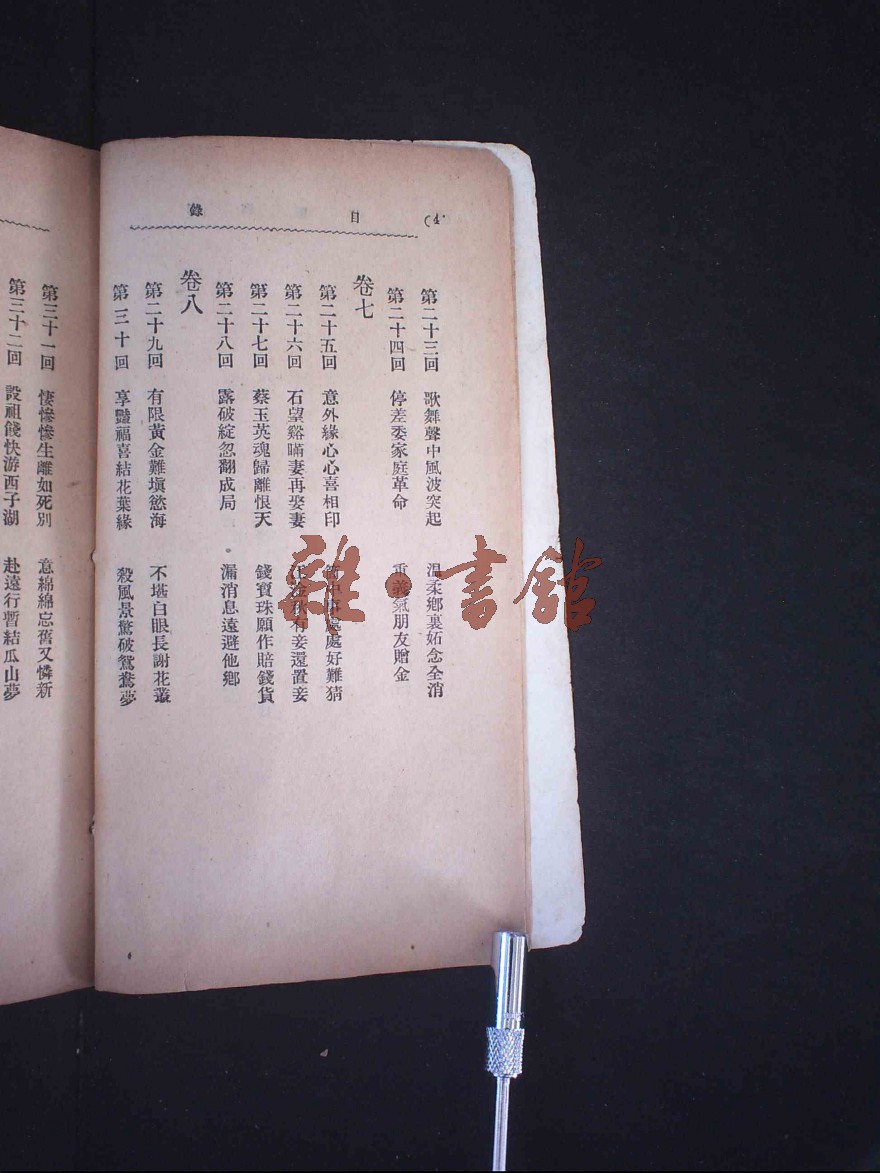 目錄
第二十三回 歌舞聲中風波突起 溫柔鄉裏妬念全消
第二十四回 停差委家庭革命 重義氣朋友贈金
卷七
第二十五回 意外緣心心喜相印 處處好難猜
第二十六回 石望谿瞞妻再娶妻 金秋有妾還置妾
第二十七回 蔡玉英魂歸離恨天 錢寶珠願作賠錢貨
第二十八回 露破綻忽翻成局 漏消息遠避他鄉
卷八
第二十九回 有限黃金難塡慾海 不堪白眼長謝花叢
第三十回 享豔福喜結花葉緣 殺風景驚破鴛鴦夢
第三十一回 悽慘慘生離如死別 意綿綿忘舊又憐新
第三十二回 設祖餞快游西子湖 赴遠行暫結瓜山夢
雜·書館